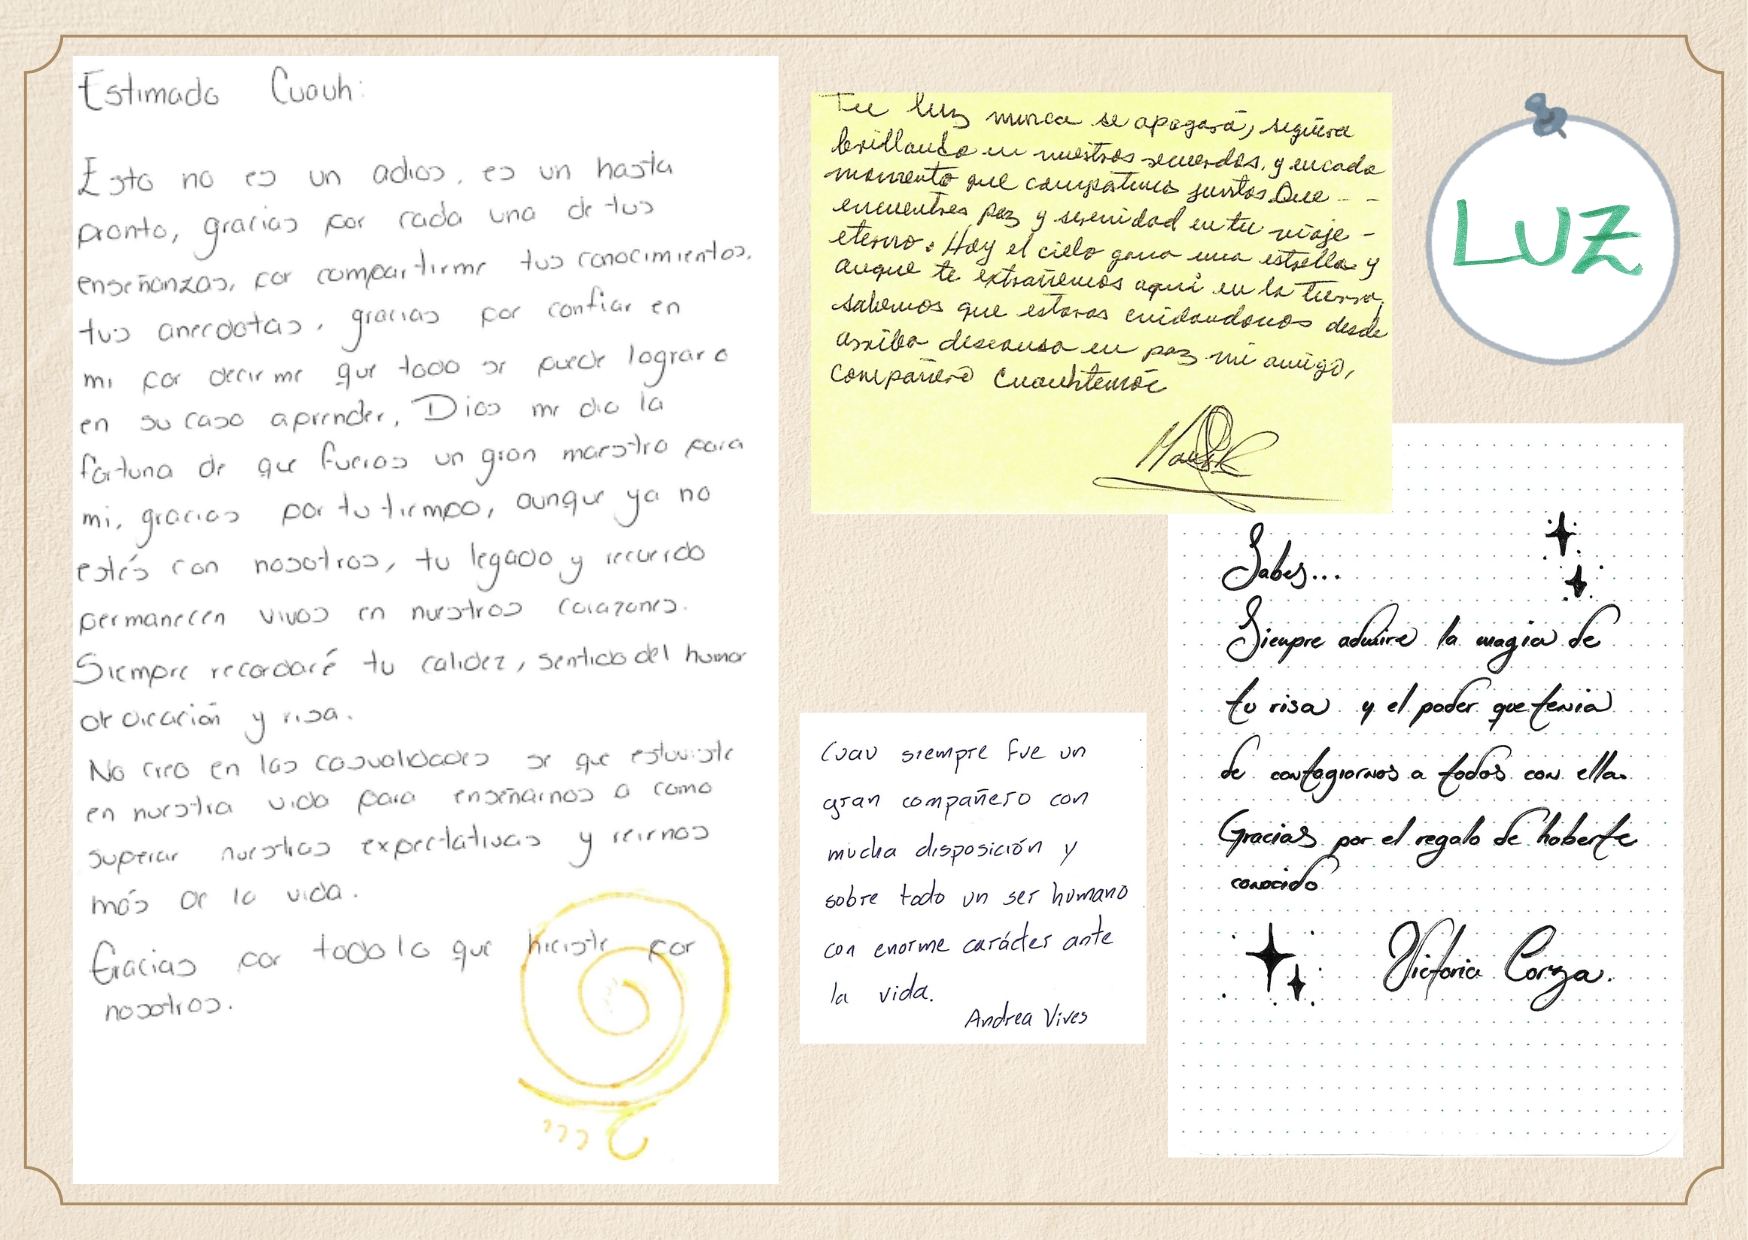 Estimado Cuauh:
Esto no es un adios, es un hasta
pronto, gracias por cada una de tus
enseñanzas, por compartirme tus conocimientos,
tus anecdotas, gracias por confiar en
mi por decirme que todo se puede lograr o
en su caso aprender, Dios me dio la
fortuna de que fueras un gran maestro para
mi, gracias por tu tiempo, aunque ya no
estés con nosotros, tu legado y recuerdo
permanecen vivos en nuestros corazones.
Siempre recordaré tu calidez, sentido del humor
dedicación y risa.
No creo en las casualidades se que estuviste
en nuestra vida para enseñarnos a como
superar nuestras expectativas y reirnos
más de la vida.
Gracias por todo lo que hiciste por
nosotros.
Tu luz nunca se apagará, seguira
brillando en nuestros recuerdos, y en cada
momento que compartimos juntos. Que - -
encuentres paz y serenidad en tu viaje -
eterno. Hoy el cielo gana una estrella y
aunque te extrañemos aquí en la tierra,
sabemos que estaras cuidandonos desde
arriba descansa en paz mi amigo,
compañero Cuauhtemóc
LUZ
Sabes...
Siempre admire la magia de
tu risa y el poder que tenia
de contagiarnos a todos con ella.
Gracias por el regalo de haberte
conocido
Victoria Corza.
Cuau siempre fue un
gran compañero con
mucha disposición y
sobre todo un ser humano
con enorme carácter ante
la vida.
Andrea Vives